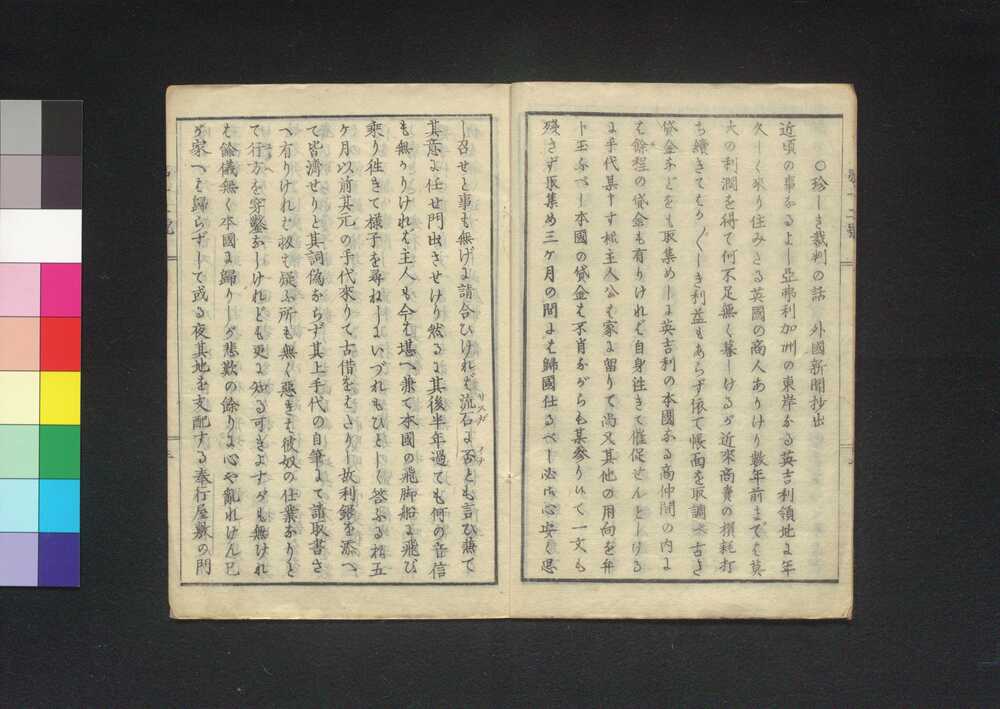 ○珍しき裁判の話 外國新聞抄出
近頃の事なるよし亞弗利加州の東岸なる英吉利領地に年
久しく來り住みたる英國の商人ありけり數年前までは莫
大の利潤を得て何不足無く暮しけるが近來商賣の損耗打
ち續きてはか〴〵しき利益もあらず依て帳面を取調べ古き
貸金などをも取集めしに英吉利の本國なる商仲間の内に
は餘程の貸金も有りければ自身往きて催促せんとしける
に手代某申す樣主人公は家に留りて尚又其他の用向を弁
ト玉ふべし本國の貸金は不肖ながらも某参りいて一文も
殘さず取集め三ケ月の間には歸國仕るべし必ず心安く思
し召せと事も無げに請合ひければ流石に否とも言ひ兼て
サスガ イナ
其意に任せ門出させけり然るに其後半年過ても何の音信
も無かりければ主人も今は堪へ兼て本國の飛脚船に飛び
乘り往きて樣子を尋ねしにいづれもひとしく答ふる樣五
ケ月以前其元の手代來りて古借をはたりし故利銀を添へ
て皆濟せりと其詞偽ならず其上手代の自筆にて請取書さ
へ有りければ扨は疑ふ所も無く惡きは彼奴の仕業なりと
て行方を穿鑿なしけれども更に知る可きよすがも無けれ
ば餘儀無く本國に歸りしが悲歎の餘りに心や亂れけん己
が家へは歸らずして或る夜其地を支配する奉行屋敷の門